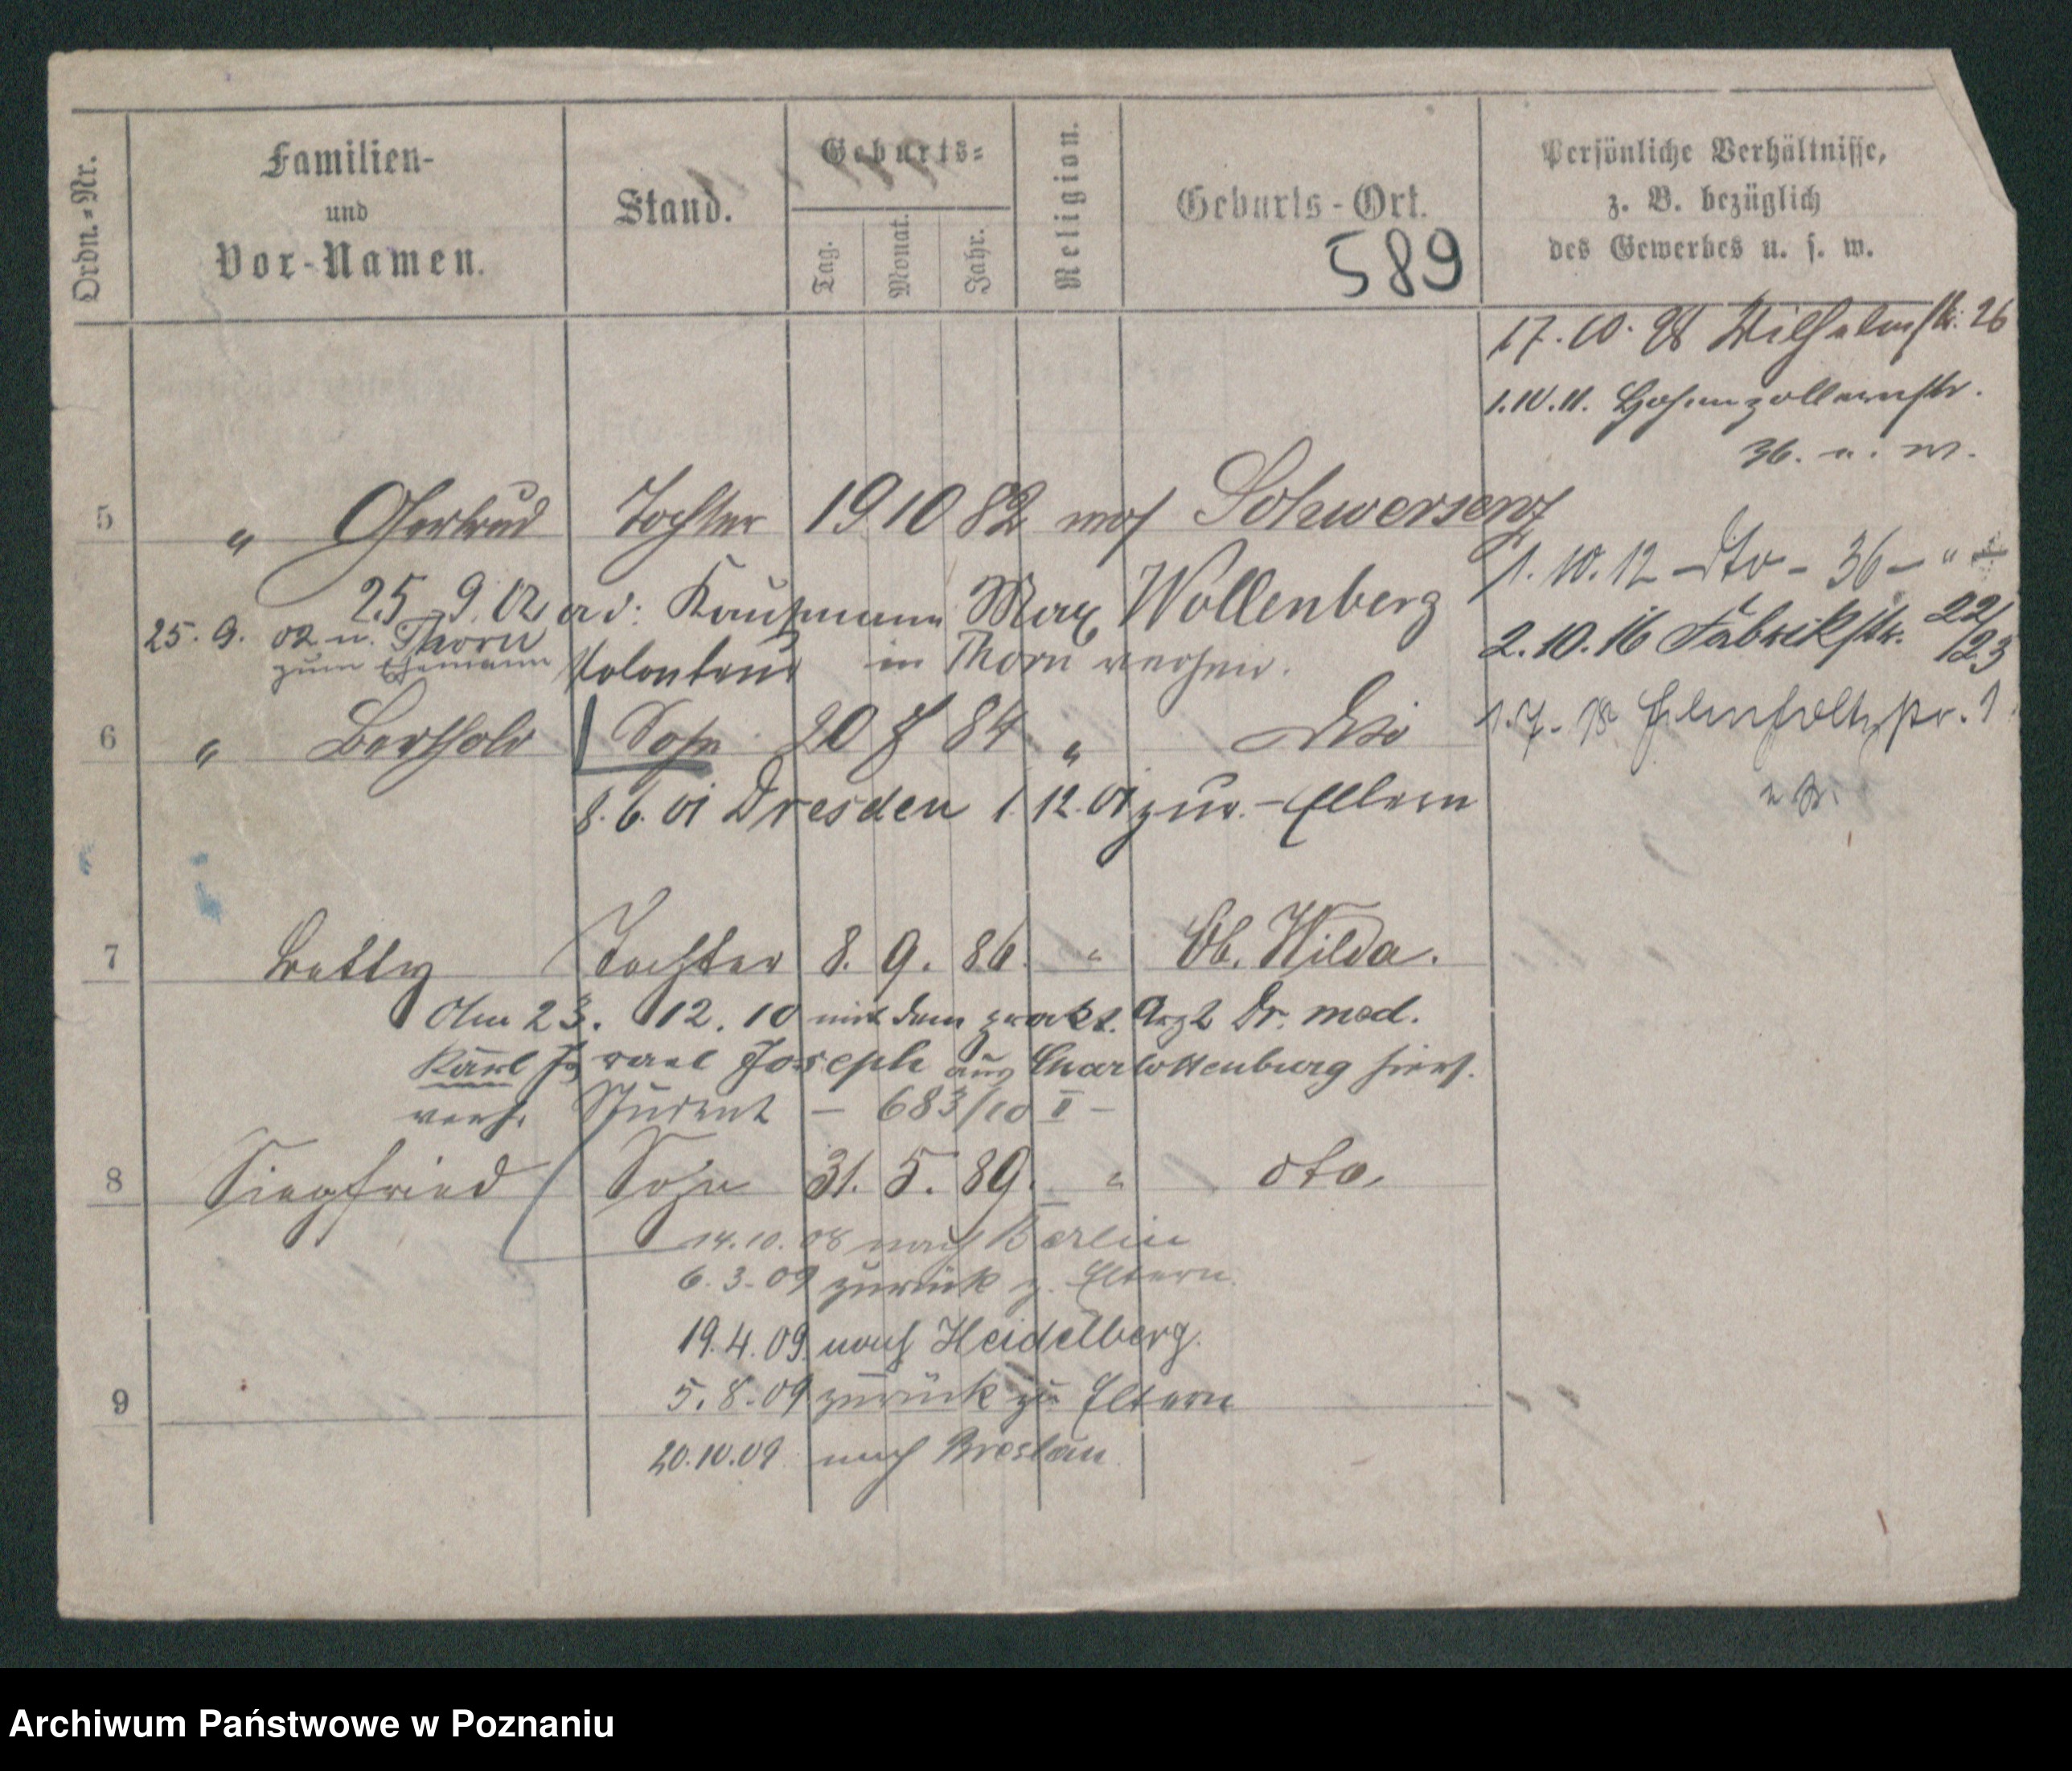 Ordn.-Nr.
Familien-
und
Vor-Namen.
Stand.
Geburts-
Tag.
Monat.
Jahr.
Religion.
Geburts-Ort.
589
Persönliche Verhältnisse,
z. B. bezüglich
des Gewerbes u. s. w.
17.10.98 Wilhelmstr. 26
1.10.11. Hohenzollernstr.
36.
5 " Gertrud Tochter 19 10 82 mos Schwersenz
1.10.12 - dto - 36 - "
25 9.02 Kaufmann Max Wollenberg
25.9.02 n. Thorn
zum Ehemann
in Thorn verheir.
2.10.16 Fabrikstr. 22/23
Volontär
6 " Berthold Sohn 20 7 84 "
1.7.18 str. 1
8.6.01 Dresden 1.12.01 zur. Eltern
7 Betty Tochter 8. 9. 86. " Ob. Wilda.
Am 23. 12. 10 mit dem prakt. Arzt Dr. med.
Karl Israel Joseph aus Charlottenburg hiers.
verh. Student - 683/10 II -
8 Siegfried Sohn 31. 5. 89. " dto.
14.10.08 nach Berlin
6.3.09 zurück z. Eltern.
19.4.09. nach Heidelberg.
5.8.09 zurück zu Eltern
9
20.10.09 nach Breslau
Archiwum Państwowe w Poznaniu